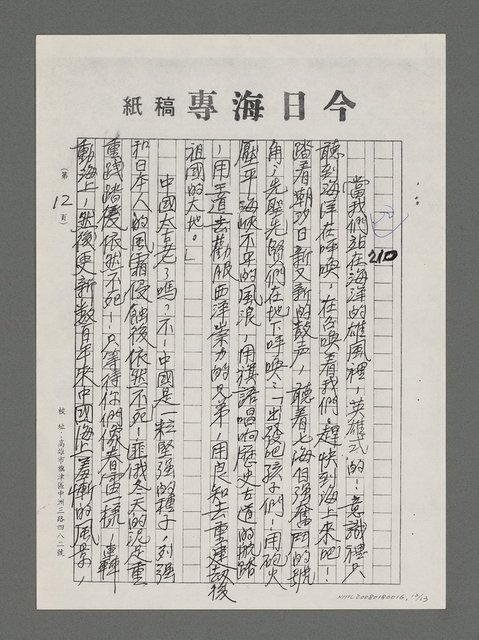 今日海專稿紙
210
當我們站在海洋的雄風裡，英雄式的！意識裡只
聽到海洋在呼喚，在召喚着我們，趕快到海上來吧！
踏着朝日新又新的鼓声，聽着七海自強奮鬥的號
角；先聖先賢們在地下呼喚：「出發吧孩子們！用砲火
壓平海峽不平的風浪，用旗語唱响歷史古道的航路
，用王道去勸服西洋崇力的兄弟，用良知去重建劫後
祖國的大地。」
中國太老了嗎？不！中國是一粒堅强的種子，列强
和日本人的風霜侵蝕後依然不死，匪俄冬天的泥足重
重踐踏後依然不死！只等待你們像春雷一樣，轟
動海上！然後更新數百年來中國海上羞慚的風景，
（第12頁）
校址：高雄市旗津區中洲三路四八二號
NMTL20080180016, 12/13